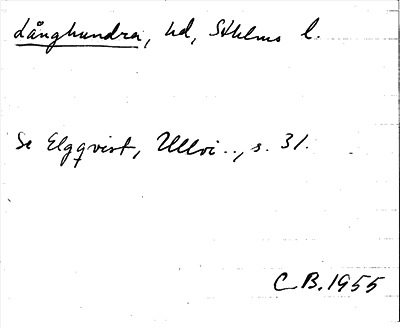 Långhundra, hd, Sthlms l.
Se Elgqvist, Ullvi.., s. 31.
C.B. 1955